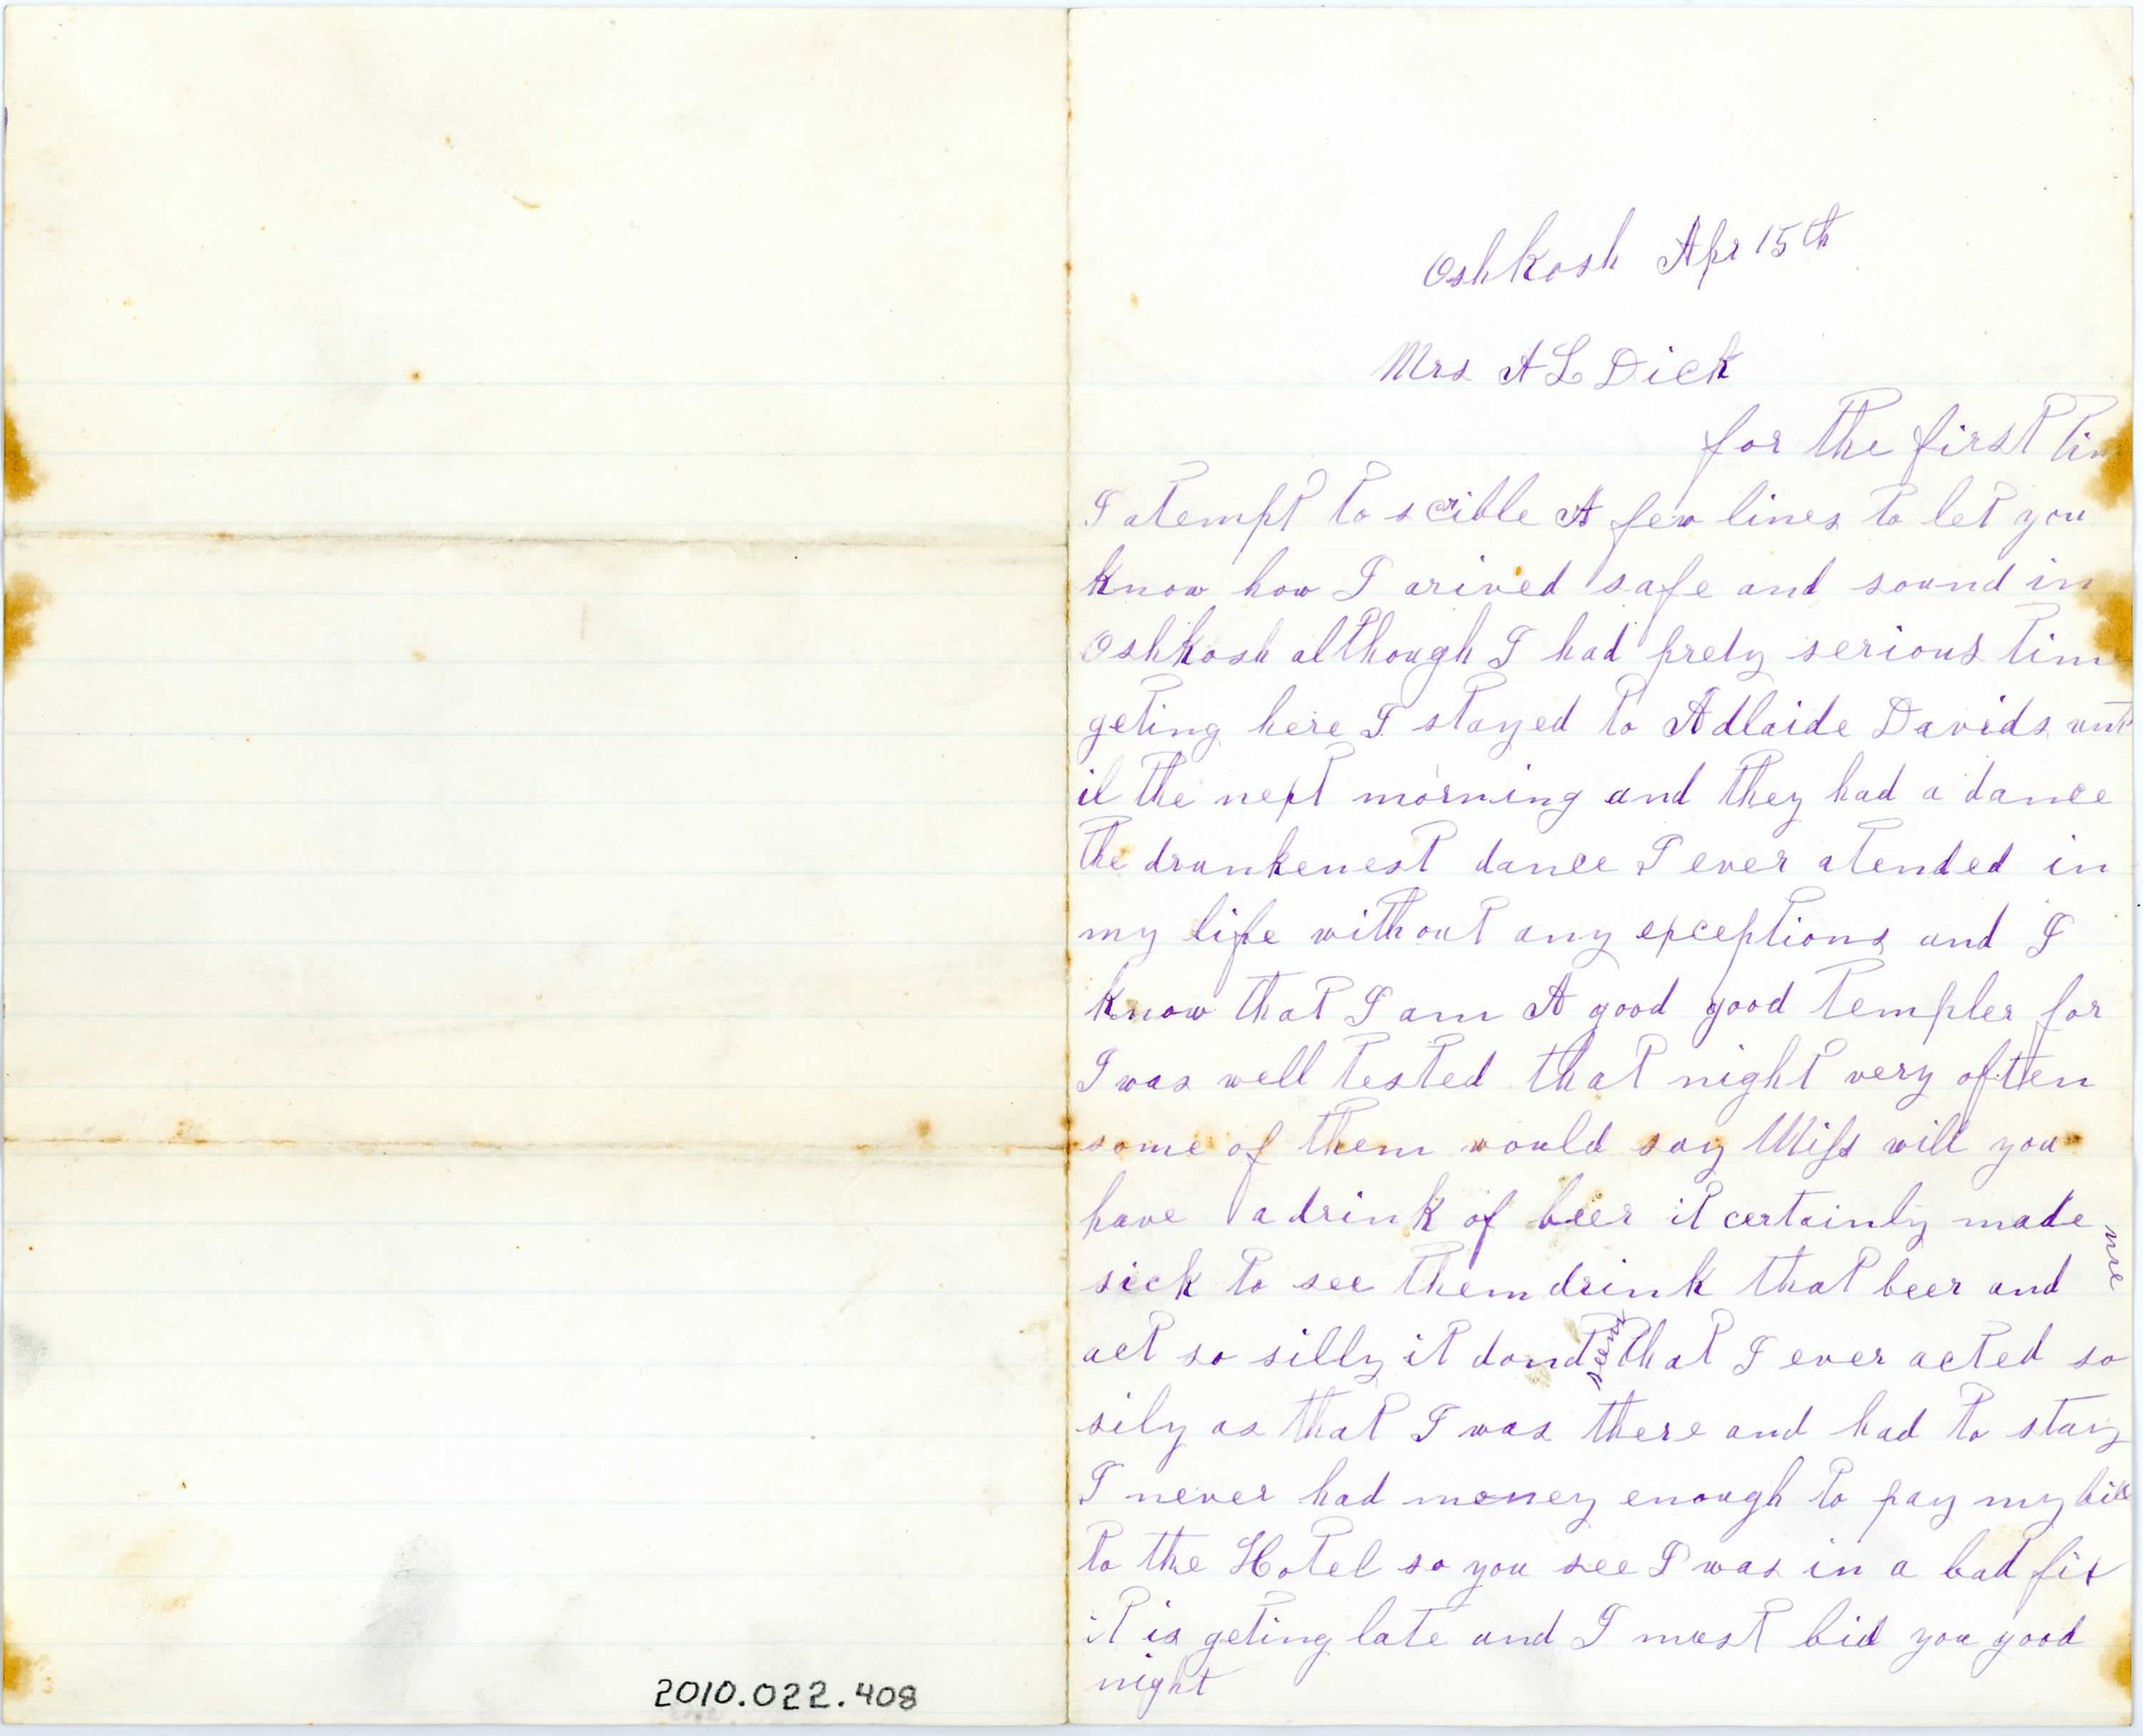 Oshkosh Apr 15th
Mrs A L Dick
for the first tim
I atempt to scrible A few lines to let you
know how I arived safe and sound in
Oshkosh although I had prety serious time
geting here I stayed to Adlaide Davids unt
il the next morning and they had a dance
the drunkenest dance I ever atended in
my life without any exceptions and I
know that I am A good good templer for
I was well tested that night very often
some of them would say Miss will you
have a drink of beer it certainly made me
sick to see them drink that beer and
act so silly it dond seem that I ever acted so
sily as that I was there and had to stay
I never had money enough to pay my bill
to the Hotel so you see I was in a bad fix
it is geting late and I must bid you good
night
2010.022.408